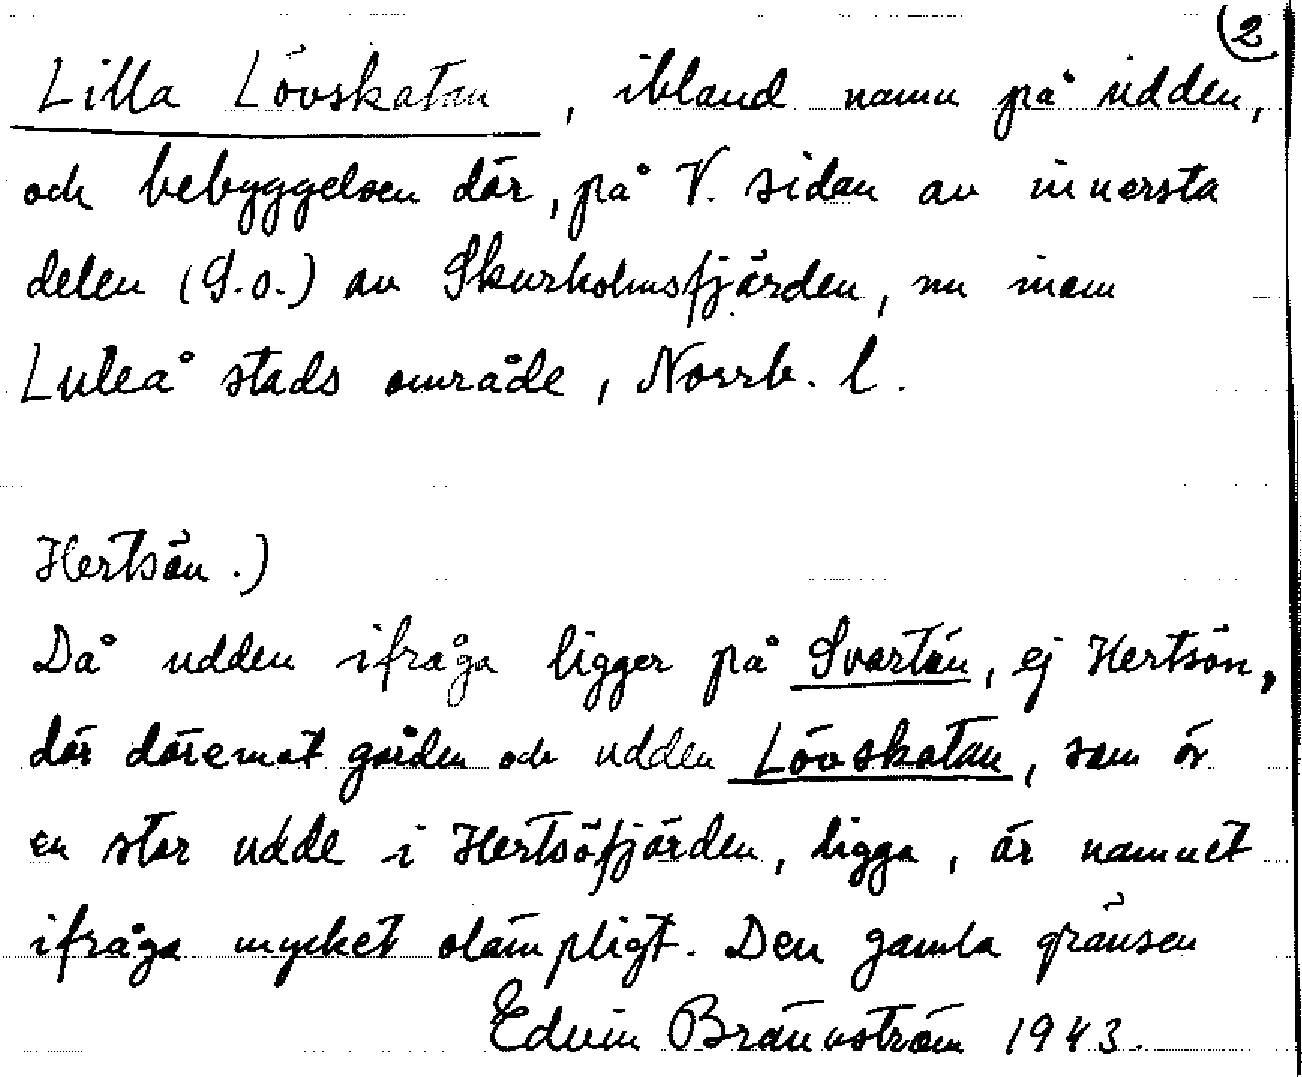 2
Lilla Lövskatan, ibland namn på udden,
och bebyggelsen där, på V. sidan av innersta
delen (S.o.) av Skurholmsfjärden, nu inom
Luleå stads område, Norrb. l.
Hertsön.)
Då udden ifråga ligger på Svartön, ej Hertsön,
där däremot gården och udden Lövskatan, som är
en stor udde i Hertsöfjärden, ligga, är namnet
ifråga mycket olämpligt. Den gamla gränsen
Edvin Brännström 1943.